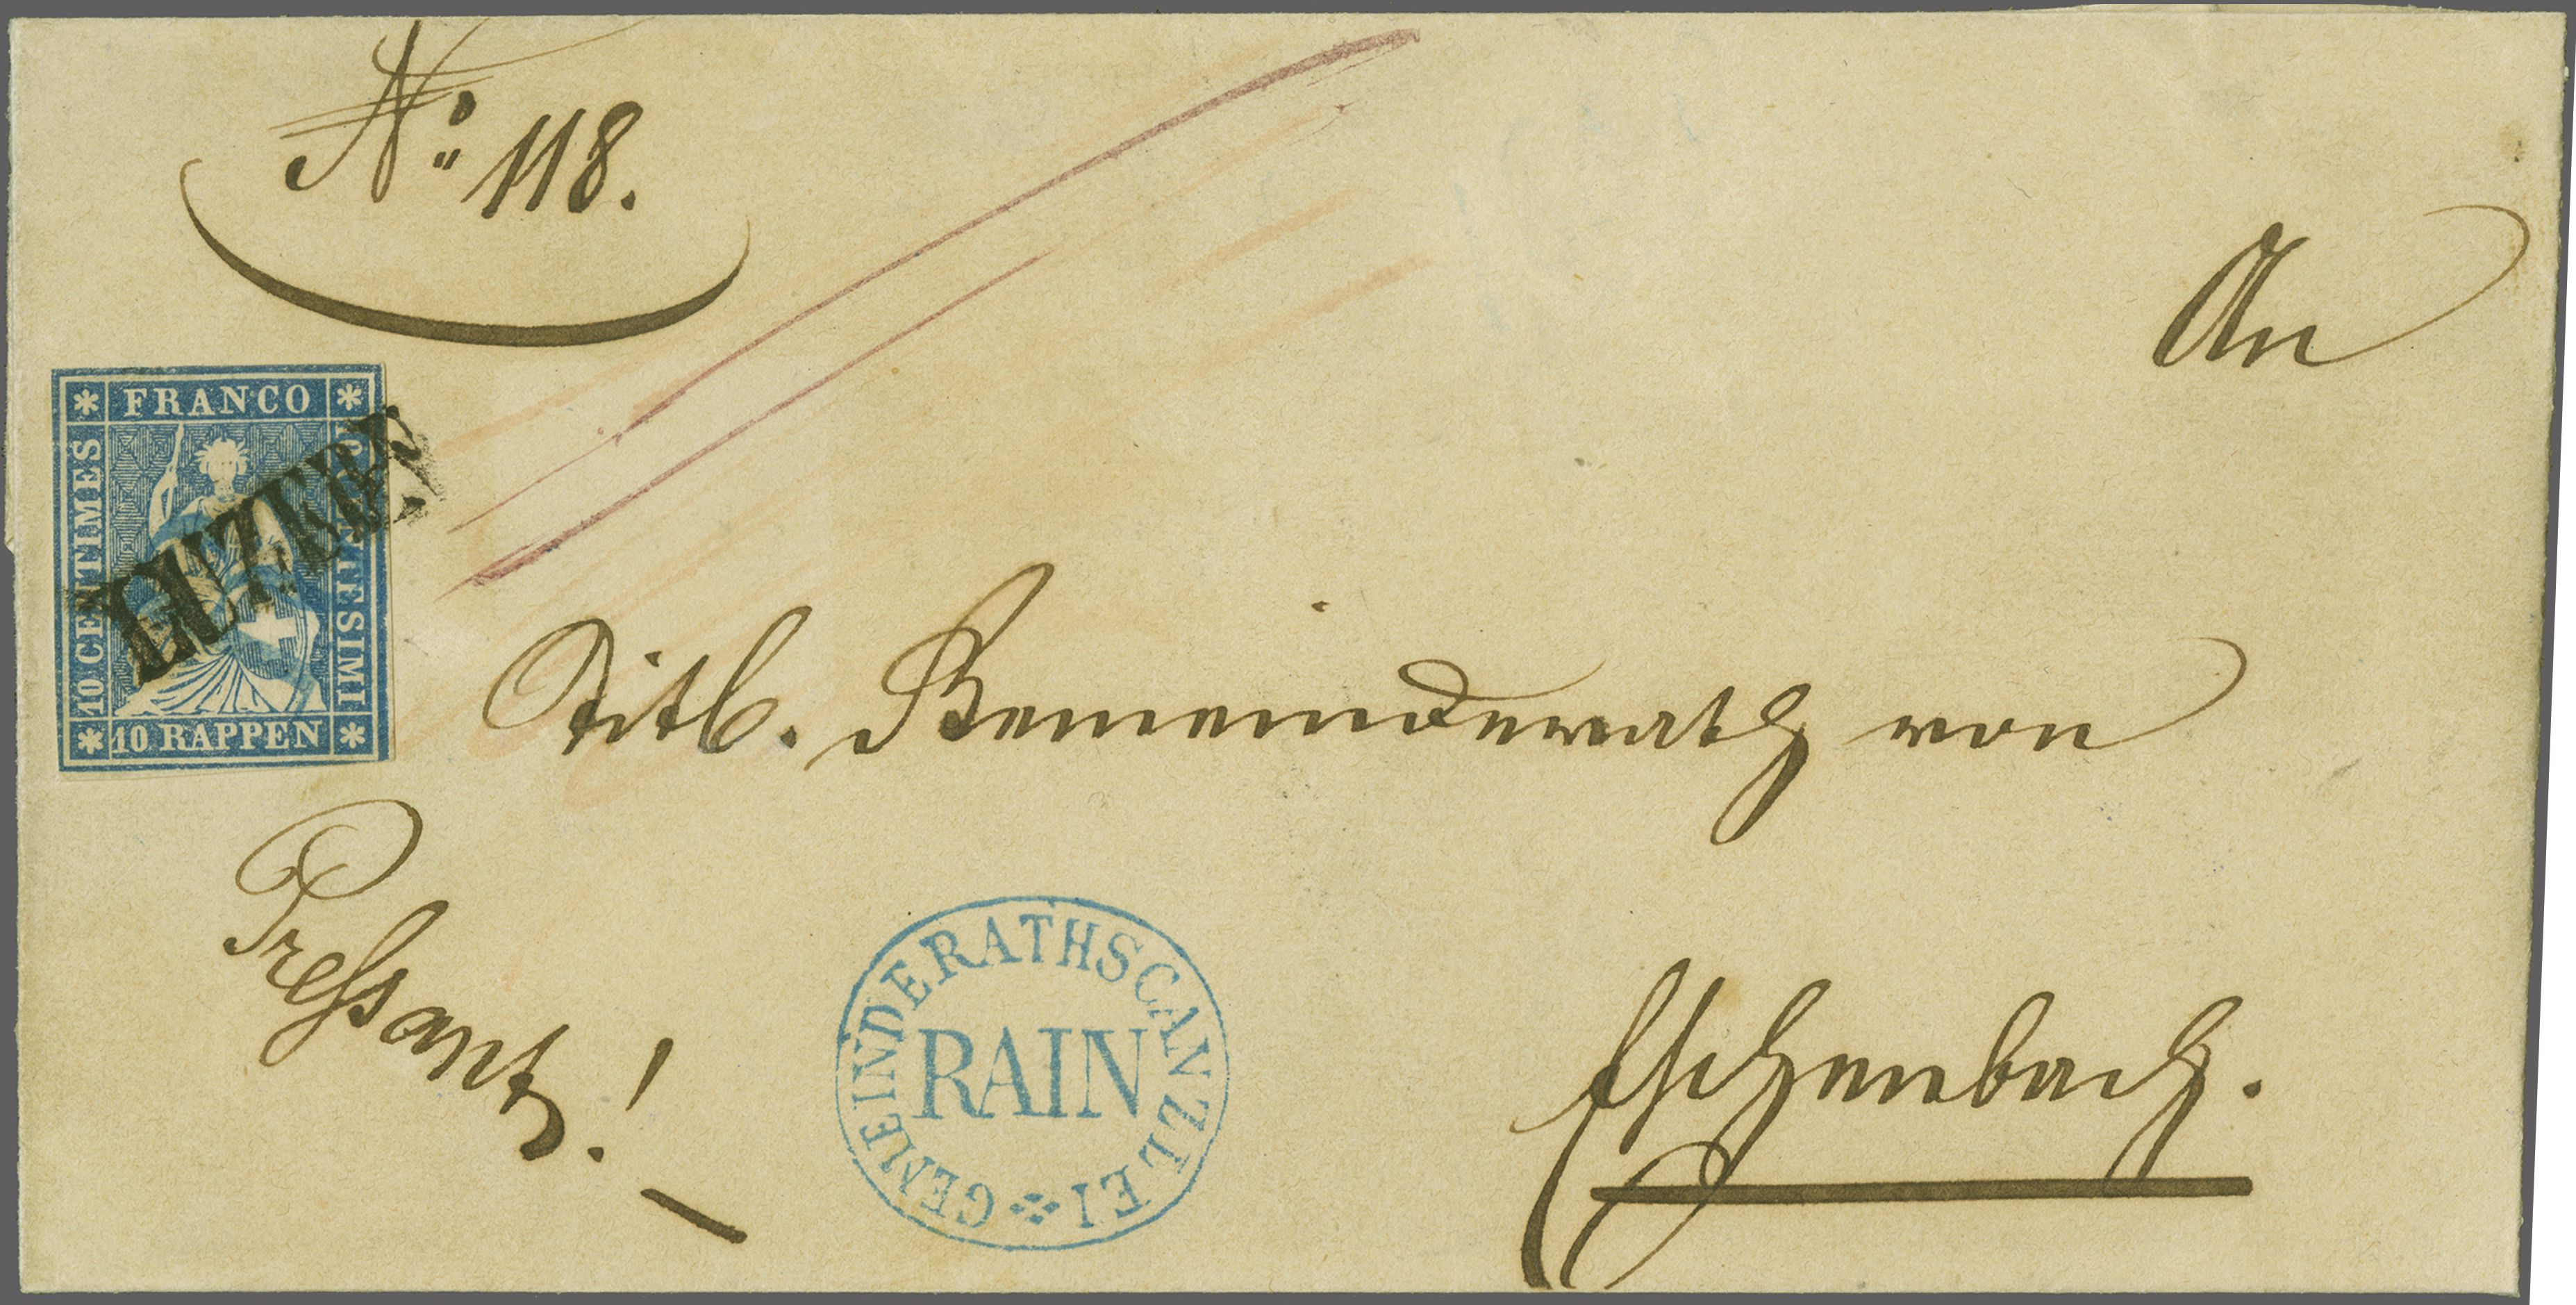 No: 118.
An
FRANCO
10 CENTIMES
10 CENTESIMI
10 RAPPEN
LUZERN
Titl. Gemeinderath von
Pressant!
GEMEINDERATHSCANZLEI
RAIN
Eschenbach.